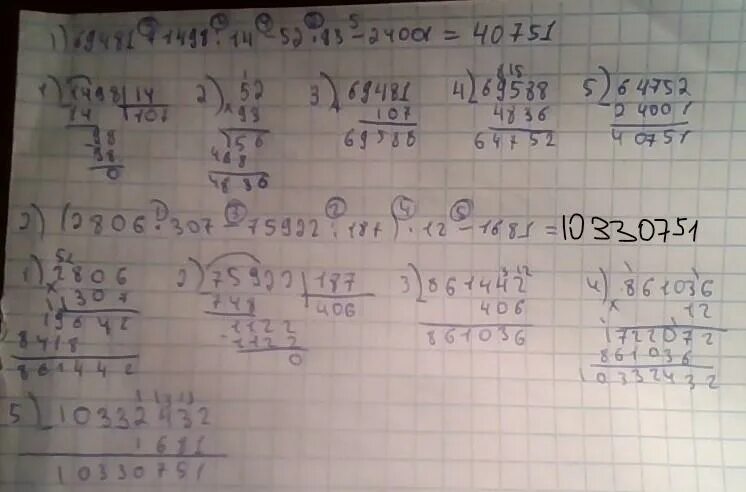 1) 69481 + 1498 : 14 - 52 · 93 - 24001 = 40751
1) 1498 | 14 2) 52 3) 69481 4) 69588 5) 64752
14 107 × 93 107 4836 24001
98 156 69588 64752 40751
98 468
0 4836
2) (2806 · 307 - 75922 : 187) · 12 - 1681 = 10330751
1) 2806 2) 75922 | 187 3) 861442 4) 861036
× 307 748 406 406 × 12
19642 1122 861036 1722072
8418 - 1122 861036
861442 0 10332432
5) 10332432
1681
10330751